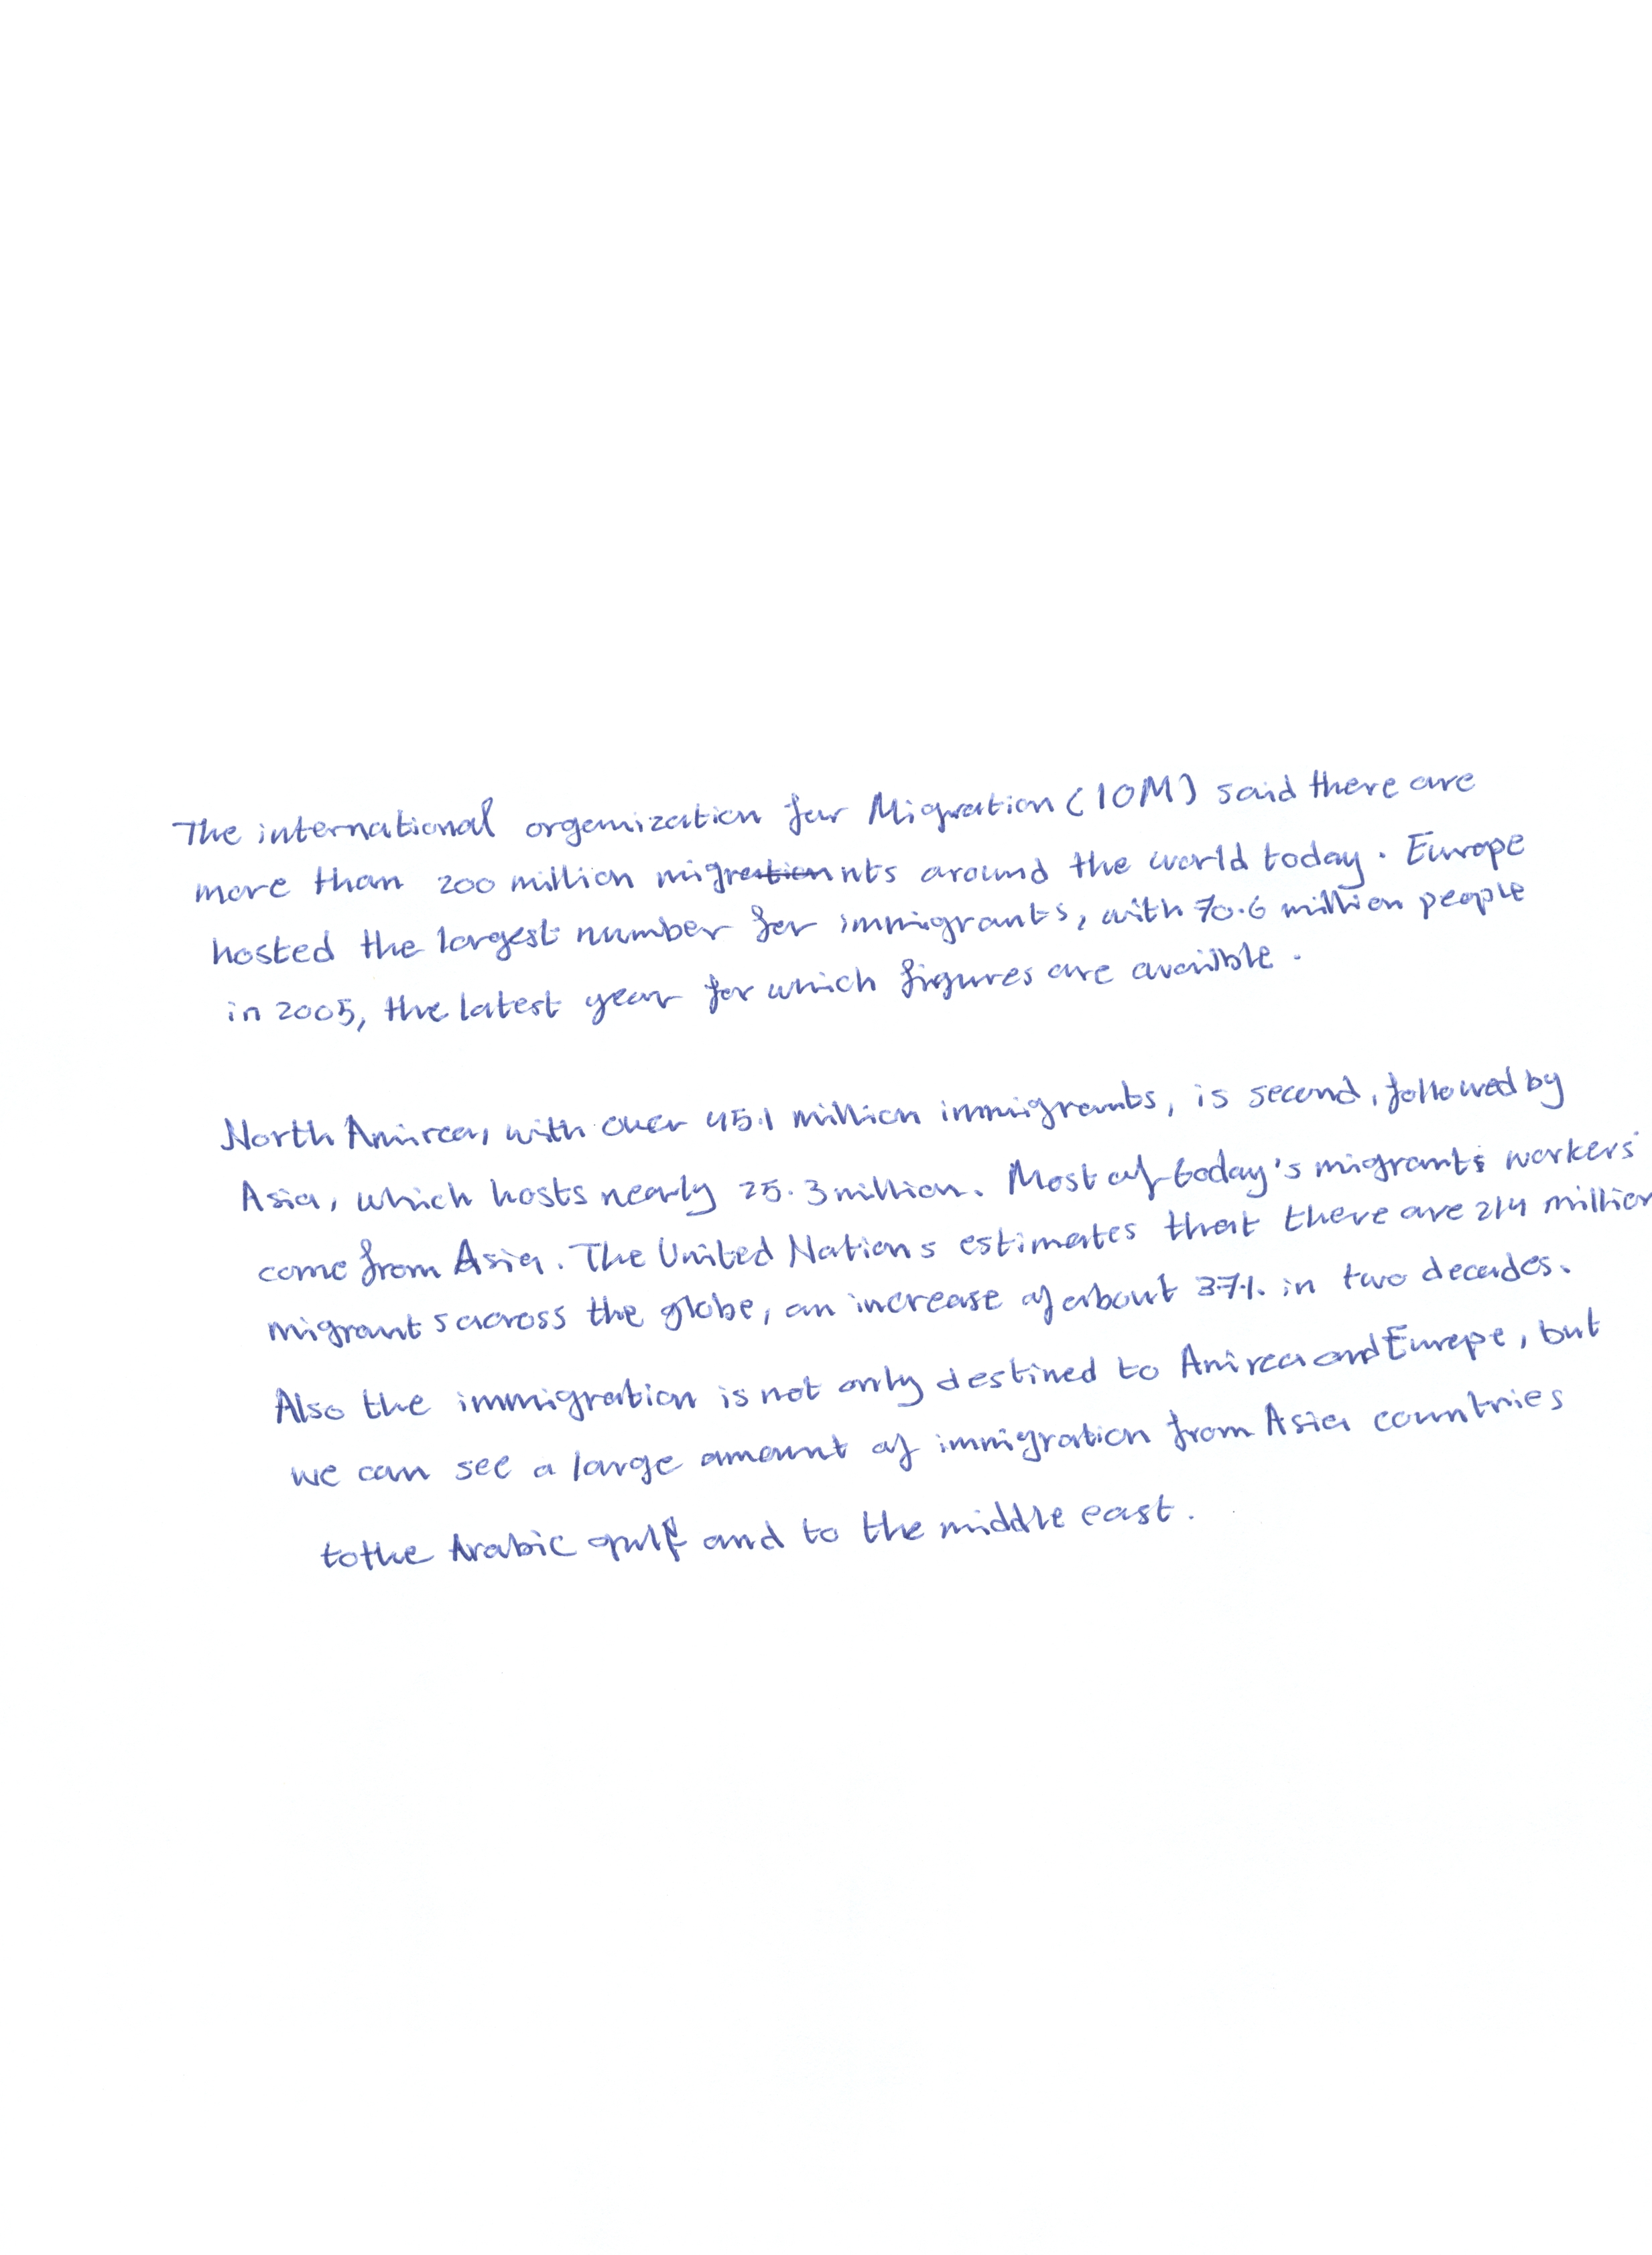 The international organization for Migration (IOM) said there are
more than 200 million migrants around the world today. Europe
hosted the largest number for immigrants, with 70.6 million people
in 2005, the latest year for which figures are availble.
North Amirca, with over 45.1 million immigrants, is second, followed by
Asia, which hosts nearly 25.3 million. Most of today's migrants workers
come from Asia. The United Nations estimates that there are 214 million
migrants across the globe, an increase of about 37% in two decades.
Also the immigration is not only destined to Amirca and Europe, but
we can see a large amount of immigration from Asia countries
to the Arabic gulf and to the middle east.